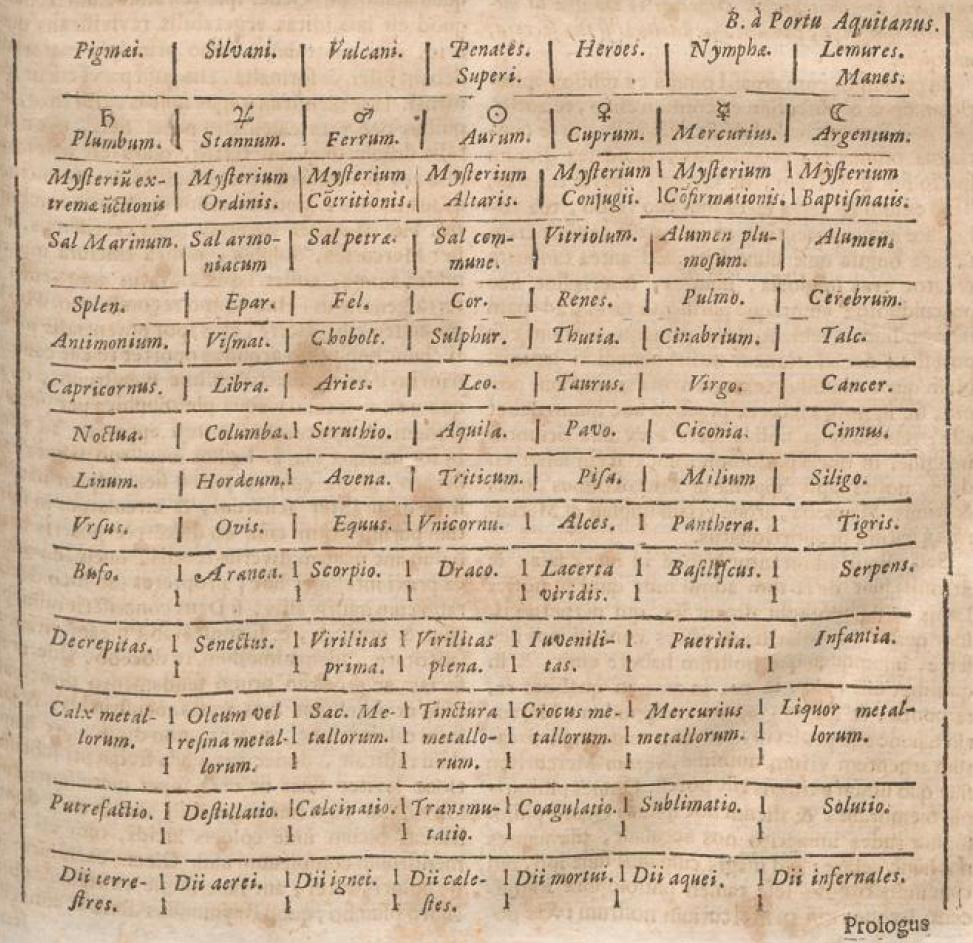 B. à Portu Aquitanus.
Pigmæi. Silvani. Vulcani. Penates Heroes. Nymphæ. Lemures.
Superi. Manes.
♄ ♃ ♂ ☉ ♀ ☿ ☾
Plumbum. Stannum. Ferrum. Aurum. Cuprum. Mercurius. Argentum.
Myſteriũ ex- Myſterium Myſterium Myſterium Myſterium Myſterium Myſterium
tremæ ũctionis Ordinis. Cõtritionis. Altaris. Conjugii. Cõfirmationis. Baptiſmatis.
Sal Marinum. Sal armo- Sal petræ. Sal com- Vitriolum. Alumen plu- Alumen.
niacum mune. moſum.
Splen. Epar. Fel. Cor. Renes. Pulmo. Cerebrum.
Antimonium. Viſmat. Chobolt. Sulphur. Thutia. Cinabrium. Talc.
Capricornus. Libra. Aries. Leo. Taurus. Virgo. Cancer.
Noctua. Columba. Struthio. Aquila. Pavo. Ciconia. Cinnus.
Linum. Hordeum. Avena. Triticum. Piſa. Milium Siligo.
Vrſus. Ovis. Equus. Vnicornu. Alces. Panthera. Tigris.
Bufo. Aranea. Scorpio. Draco. Lacerta Baſiliſcus. Serpens.
viridis.
Decrepitas. Senectus. Virilitas Virilitas Iuvenili- Pueritia. Infantia.
prima. plena. tas.
Calx metal- Oleum vel Sac. Me- Tinctura Crocus me- Mercurius Liquor metal-
lorum. reſina metal- tallorum. metallo- tallorum. metallorum. lorum.
lorum. rum.
Putrefactio. Deſtillatio. Calcinatio. Transmu- Coagulatio. Sublimatio. Solutio.
tatio.
Dii terre- Dii aerei. Dii ignei. Dii cæle- Dii mortui. Dii aquei. Dii infernales.
ſtres. ſtes.
Prologus